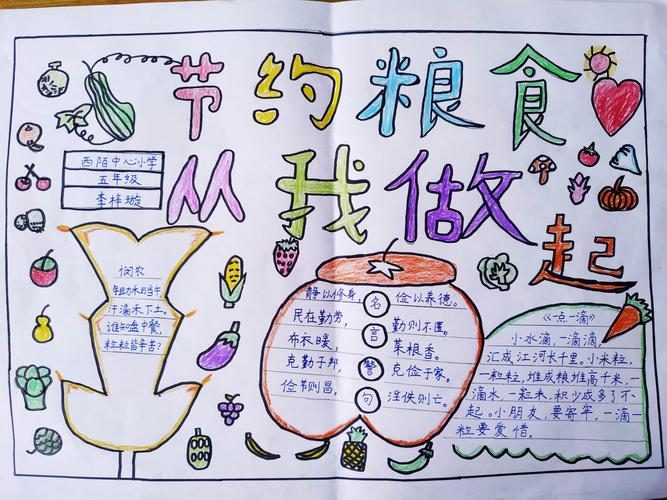 节约粮食
从我做起
西陌中心小学
五年级
李梓璇
悯农
锄禾日当午
汗滴禾下土。
谁知盘中餐
粒粒皆辛苦?
名言警句
静以修身,
俭以养德。
民在勤劳,
勤则不匮。
布衣暖,
菜根香。
克勤于邦,
克俭于家。
俭节则昌,
淫佚则亡。
《一点一滴》
小水滴,一滴滴,
汇成江河长千里。小米粒,
一粒粒,堆成粮堆高千米,一
滴水,一粒米,积少成多了不
起。小朋友,要牢牢,一滴一
粒要爱惜。